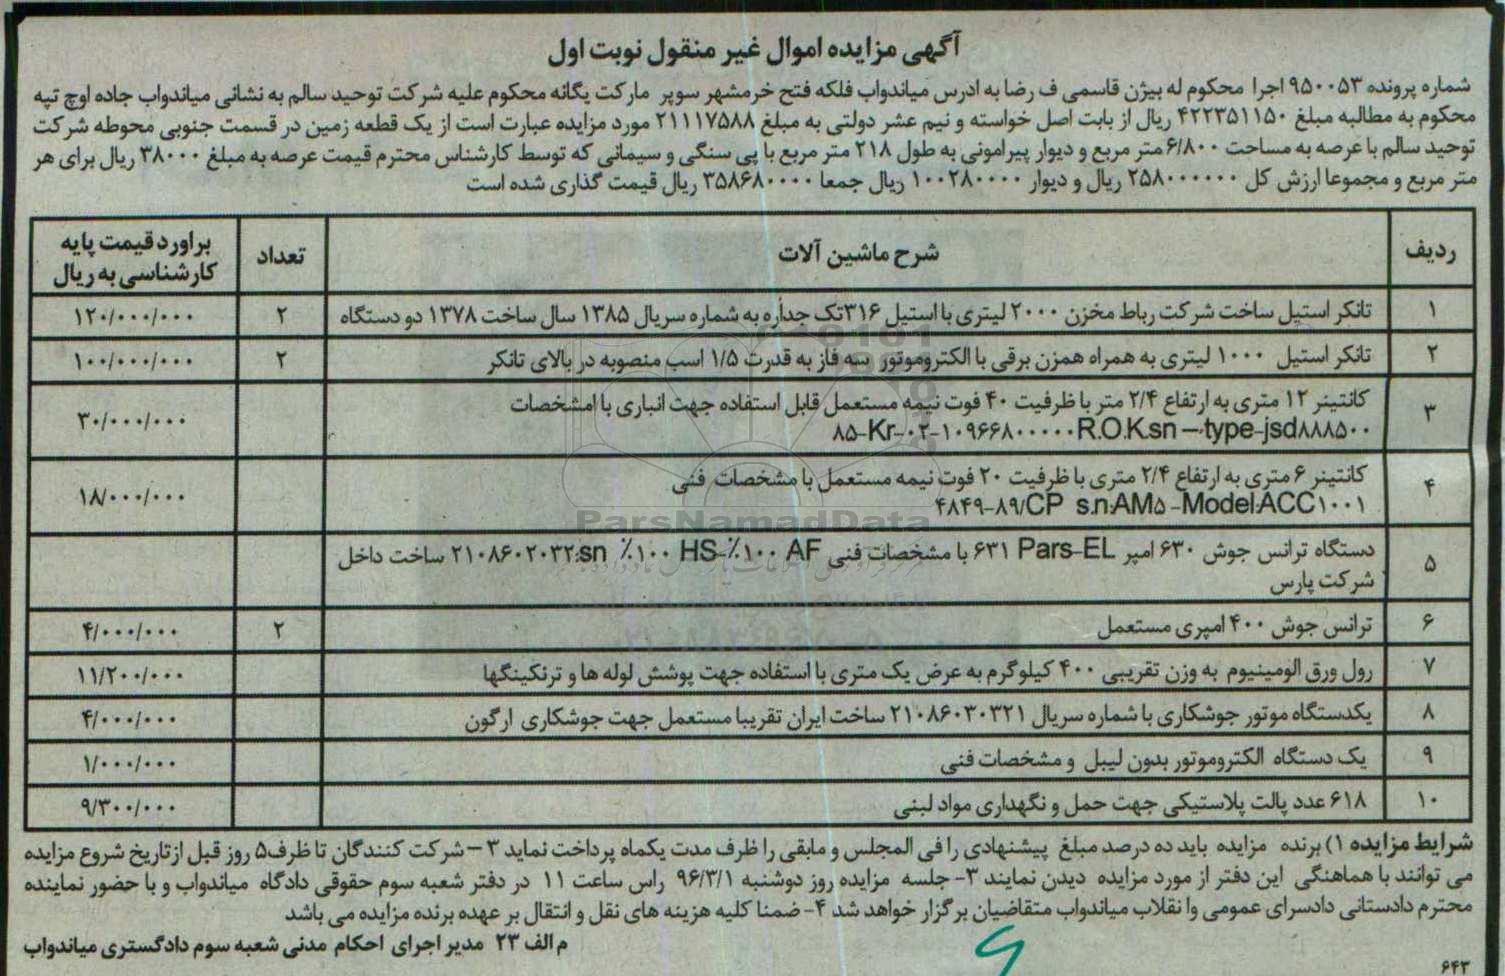 آگهی مزایده اموال غیر منقول نوبت اول
شماره پرونده ۹۵۰۰۵۳ اجرا محکوم له بیژن قاسمی ف رضا به ادرس میاندواب فلکه فتح خرمشهر سوپر مارکت یگانه محکوم علیه شرکت توحید سالم به نشانی میاندواب جاده اوچ تپه
محکوم به مطالبه مبلغ ۴۲۲۳۵۱۱۵۰ ریال از بابت اصل خواسته و نیم عشر دولتی به مبلغ ۲۱۱۱۷۵۸۸ مورد مزایده عبارت است از یک قطعه زمین در قسمت جنوبی محوطه شرکت
توحید سالم با عرصه به مساحت ۶/۸۰۰ متر مربع و دیوار پیرامونی به طول ۲۱۸ متر مربع با پی سنگی و سیمانی که توسط کارشناس محترم قیمت عرصه به مبلغ ۳۸۰۰۰ ریال برای هر
متر مربع و مجموعا ارزش کل ۲۵۸۰۰۰۰۰۰ ریال و دیوار ۱۰۰۲۸۰۰۰۰ ریال جمعا ۳۵۸۶۸۰۰۰۰ ریال قیمت گذاری شده است
ردیف شرح ماشین آلات تعداد براورد قیمت پایه
کارشناسی به ریال
۱ تانکر استیل ساخت شرکت رباط مخزن ۲۰۰۰ لیتری با استیل ۳۱۶تک جداره به شماره سریال ۱۳۸۵ سال ساخت ۱۳۷۸ دو دستگاه ۲ ۱۲۰/۰۰۰/۰۰۰
۲ تانکر استیل ۱۰۰۰ لیتری به همراه همزن برقی با الکتروموتور سه فاز به قدرت ۱/۵ اسب منصوبه در بالای تانکر ۲ ۱۰۰/۰۰۰/۰۰۰
۳ کانتینر ۱۲ متری به ارتفاع ۲/۴ متر با ظرفیت ۴۰ فوت نیمه مستعمل قابل استفاده جهت انباری با امشخصات ۳۰/۰۰۰/۰۰۰
۸۵-Kr-۰۲-۱۰۹۶۶۸۰۰۰۰۰R.O.K.sn –type-jsd۸۸۸۵۰۰
۴ کانتینر ۶ متری به ارتفاع ۲/۴ متری با ظرفیت ۲۰ فوت نیمه مستعمل با مشخصات فنی ۱۸/۰۰۰/۰۰۰
۴۸۴۹-۸۹/CP s.n:AM۵ -Model:ACC۱۰۰۱
۵ دستگاه ترانس جوش ۶۳۰ امپر Pars-EL ۶۳۱ با مشخصات فنی HS-٪۱۰۰ AF ٪۱۰۰ sn:۲۱۰۸۶۰۲۰۳۲ ساخت داخل
شرکت پارس
۶ ترانس جوش ۴۰۰ امپری مستعمل ۲ ۴/۰۰۰/۰۰۰
۷ رول ورق الومینیوم به وزن تقریبی ۴۰۰ کیلوگرم به عرض یک متری با استفاده جهت پوشش لوله ها و ترنکینگها ۱۱/۲۰۰/۰۰۰
۸ یکدستگاه موتور جوشکاری با شماره سریال ۲۱۰۸۶۰۳۰۳۲۱ ساخت ایران تقریبا مستعمل جهت جوشکاری ارگون ۴/۰۰۰/۰۰۰
۹ یک دستگاه الکتروموتور بدون لیبل و مشخصات فنی ۱/۰۰۰/۰۰۰
۱۰ ۶۱۸ عدد پالت پلاستیکی جهت حمل و نگهداری مواد لبنی ۹/۳۰۰/۰۰۰
ParsNamadData
شرایط مزایده ۱) برنده مزایده باید ده درصد مبلغ پیشنهادی را فی المجلس و مابقی را ظرف مدت یکماه پرداخت نماید ۲-شرکت کنندگان تا ظرف۵ روز قبل ازتاریخ شروع مزایده
می توانند با هماهنگی این دفتر از مورد مزایده دیدن نمایند ۳- جلسه مزایده روز دوشنبه ۹۶/۳/۱ راس ساعت ۱۱ در دفتر شعبه سوم حقوقی دادگاه میاندواب و با حضور نماینده
محترم دادستانی دادسرای عمومی وا نقلاب میاندواب متقاضیان برگزار خواهد شد ۴- ضمنا کلیه هزینه های نقل و انتقال بر عهده برنده مزایده می باشد
م الف ۲۳ مدیر اجرای احکام مدنی شعبه سوم دادگستری میاندواب
۶۴۳